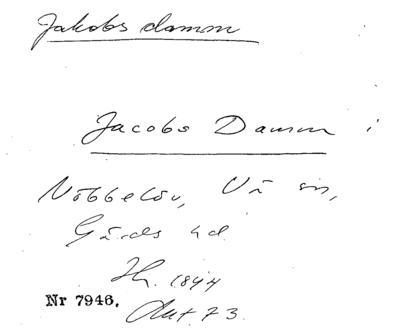 Jakobs damm
Jacobs Damm i
Nöbbelöv, Vä sn,
Gärds hd
Hr. 1844
Nr 7946. Aut 73